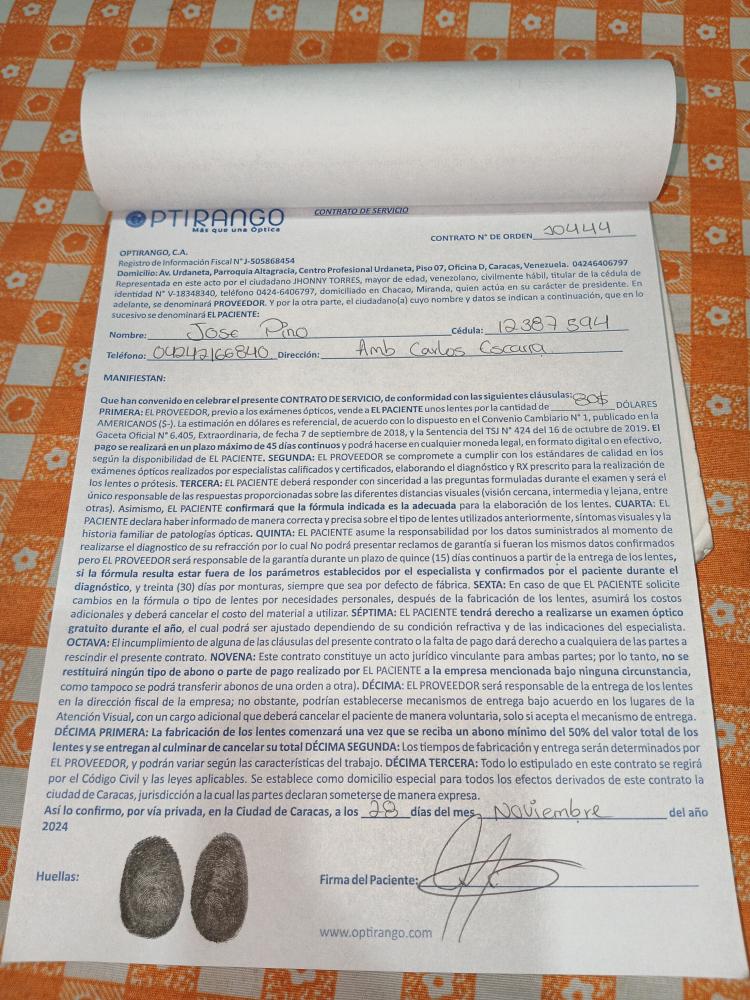 OPTIRANGO
Más que una Óptica
CONTRATO DE SERVICIO
CONTRATO N° DE ORDEN 10444
OPTIRANGO, C.A.
Registro de Información Fiscal N° J-505868454
Domicilio: Av. Urdaneta, Parroquia Altagracia, Centro Profesional Urdaneta, Piso 07, Oficina D, Caracas, Venezuela. 04246406797
Representada en este acto por el ciudadano JHONNY TORRES, mayor de edad, venezolano, civilmente hábil, titular de la cédula de
identidad N° V-18348340, teléfono 0424-6406797, domiciliado en Chacao, Miranda, quien actúa en su carácter de presidente. En
adelante, se denominará PROVEEDOR. Y por la otra parte, el ciudadano(a) cuyo nombre y datos se indican a continuación, que en lo
sucesivo se denominará EL PACIENTE:
Nombre: Jose Pino Cédula: 12387594
Teléfono: 04242166840 Dirección: Amb Carlos Escarra
MANIFIESTAN:
Que han convenido en celebrar el presente CONTRATO DE SERVICIO, de conformidad con las siguientes cláusulas:
PRIMERA: EL PROVEEDOR, previo a los exámenes ópticos, vende a EL PACIENTE unos lentes por la cantidad de 80$ DÓLARES
AMERICANOS ($-). La estimación en dólares es referencial, de acuerdo con lo dispuesto en el Convenio Cambiario N° 1, publicado en la
Gaceta Oficial N° 6.405, Extraordinaria, de fecha 7 de septiembre de 2018, y la Sentencia del TSJ N° 424 del 16 de octubre de 2019. El
pago se realizará en un plazo máximo de 45 días continuos y podrá hacerse en cualquier moneda legal, en formato digital o en efectivo,
según la disponibilidad de EL PACIENTE. SEGUNDA: EL PROVEEDOR se compromete a cumplir con los estándares de calidad en los
exámenes ópticos realizados por especialistas calificados y certificados, elaborando el diagnóstico y RX prescrito para la realización de
los lentes o prótesis. TERCERA: EL PACIENTE deberá responder con sinceridad a las preguntas formuladas durante el examen y será el
único responsable de las respuestas proporcionadas sobre las diferentes distancias visuales (visión cercana, intermedia y lejana, entre
otras). Asimismo, EL PACIENTE confirmará que la fórmula indicada es la adecuada para la elaboración de los lentes. CUARTA: EL
PACIENTE declara haber informado de manera correcta y precisa sobre el tipo de lentes utilizados anteriormente, síntomas visuales y la
historia familiar de patologías ópticas. QUINTA: EL PACIENTE asume la responsabilidad por los datos suministrados al momento de
realizarse el diagnostico de su refracción por lo cual No podrá presentar reclamos de garantía si fueran los mismos datos confirmados
pero EL PROVEEDOR será responsable de la garantía durante un plazo de quince (15) días continuos a partir de la entrega de los lentes,
si la fórmula resulta estar fuera de los parámetros establecidos por el especialista y confirmados por el paciente durante el
diagnóstico, y treinta (30) días por monturas, siempre que sea por defecto de fábrica. SEXTA: En caso de que EL PACIENTE solicite
cambios en la fórmula o tipo de lentes por necesidades personales, después de la fabricación de los lentes, asumirá los costos
adicionales y deberá cancelar el costo del material a utilizar. SÉPTIMA: EL PACIENTE tendrá derecho a realizarse un examen óptico
gratuito durante el año, el cual podrá ser ajustado dependiendo de su condición refractiva y de las indicaciones del especialista.
OCTAVA: El incumplimiento de alguna de las cláusulas del presente contrato o la falta de pago dará derecho a cualquiera de las partes a
rescindir el presente contrato. NOVENA: Este contrato constituye un acto jurídico vinculante para ambas partes; por lo tanto, no se
restituirá ningún tipo de abono o parte de pago realizado por EL PACIENTE a la empresa mencionada bajo ninguna circunstancia,
como tampoco se podrá transferir abonos de una orden a otra). DÉCIMA: EL PROVEEDOR será responsable de la entrega de los lentes
en la dirección fiscal de la empresa; no obstante, podrían establecerse mecanismos de entrega bajo acuerdo en los lugares de la
Atención Visual, con un cargo adicional que deberá cancelar el paciente de manera voluntaria, solo si acepta el mecanismo de entrega.
DÉCIMA PRIMERA: La fabricación de los lentes comenzará una vez que se reciba un abono mínimo del 50% del valor total de los
lentes y se entregan al culminar de cancelar su total DÉCIMA SEGUNDA: Los tiempos de fabricación y entrega serán determinados por
EL PROVEEDOR, y podrán variar según las características del trabajo. DÉCIMA TERCERA: Todo lo estipulado en este contrato se regirá
por el Código Civil y las leyes aplicables. Se establece como domicilio especial para todos los efectos derivados de este contrato la
ciudad de Caracas, jurisdicción a la cual las partes declaran someterse de manera expresa.
Así lo confirmo, por vía privada, en la Ciudad de Caracas, a los 28 días del mes Noviembre del año
2024
Huellas:
Firma del Paciente:
www.optirango.com